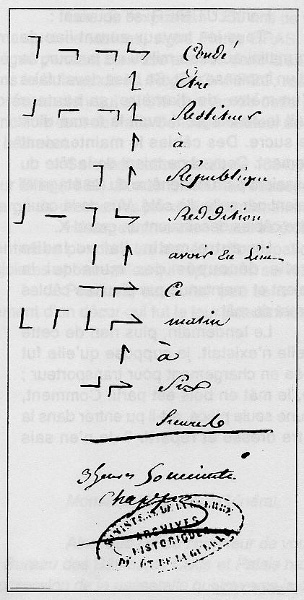 Condé
Être
Restituer
à
République
Reddition
avoir eu lieu
Ce
matin
à
Six
heures
3 heures Soixante
Chappe
MINISTERE DE LA GUERRE
ARCHIVES
HISTORIQUES
DE LA GUERRE